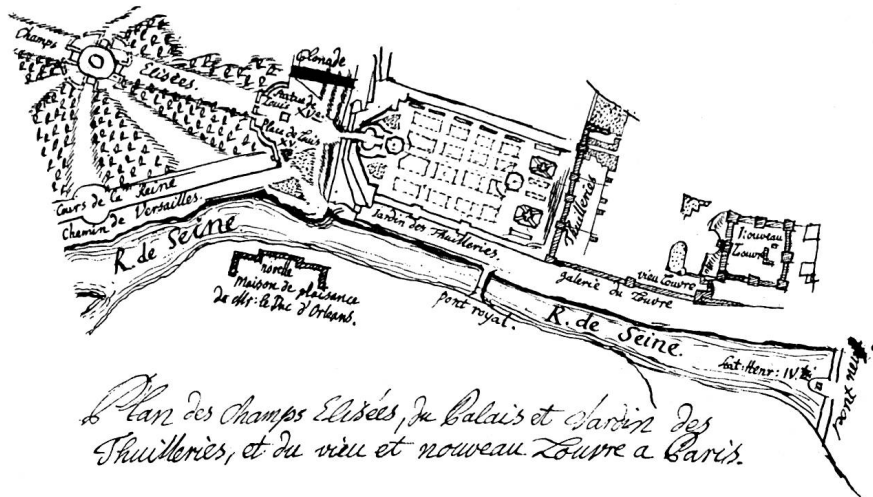 Champs
Elisées.
Colonade
Statue de
Louis
XV.
Place de Louis
XV
Cours de la Reine
Chemin de Versailles.
R. de Seine
Jardin des Thuilleries.
Thuilleries
Maison de plaisance
de Mr: le Duc d'Orleans.
pont royal.
galerie du Louvre
vieu Louvre
Nouveau
Louvre
R. de Seine.
Stat: Henr: IV.
pont neuf
Plan des Champs Elisées, du Palais et Jardin des
Thuilleries, et du vieu et nouveau Louvre a Paris.